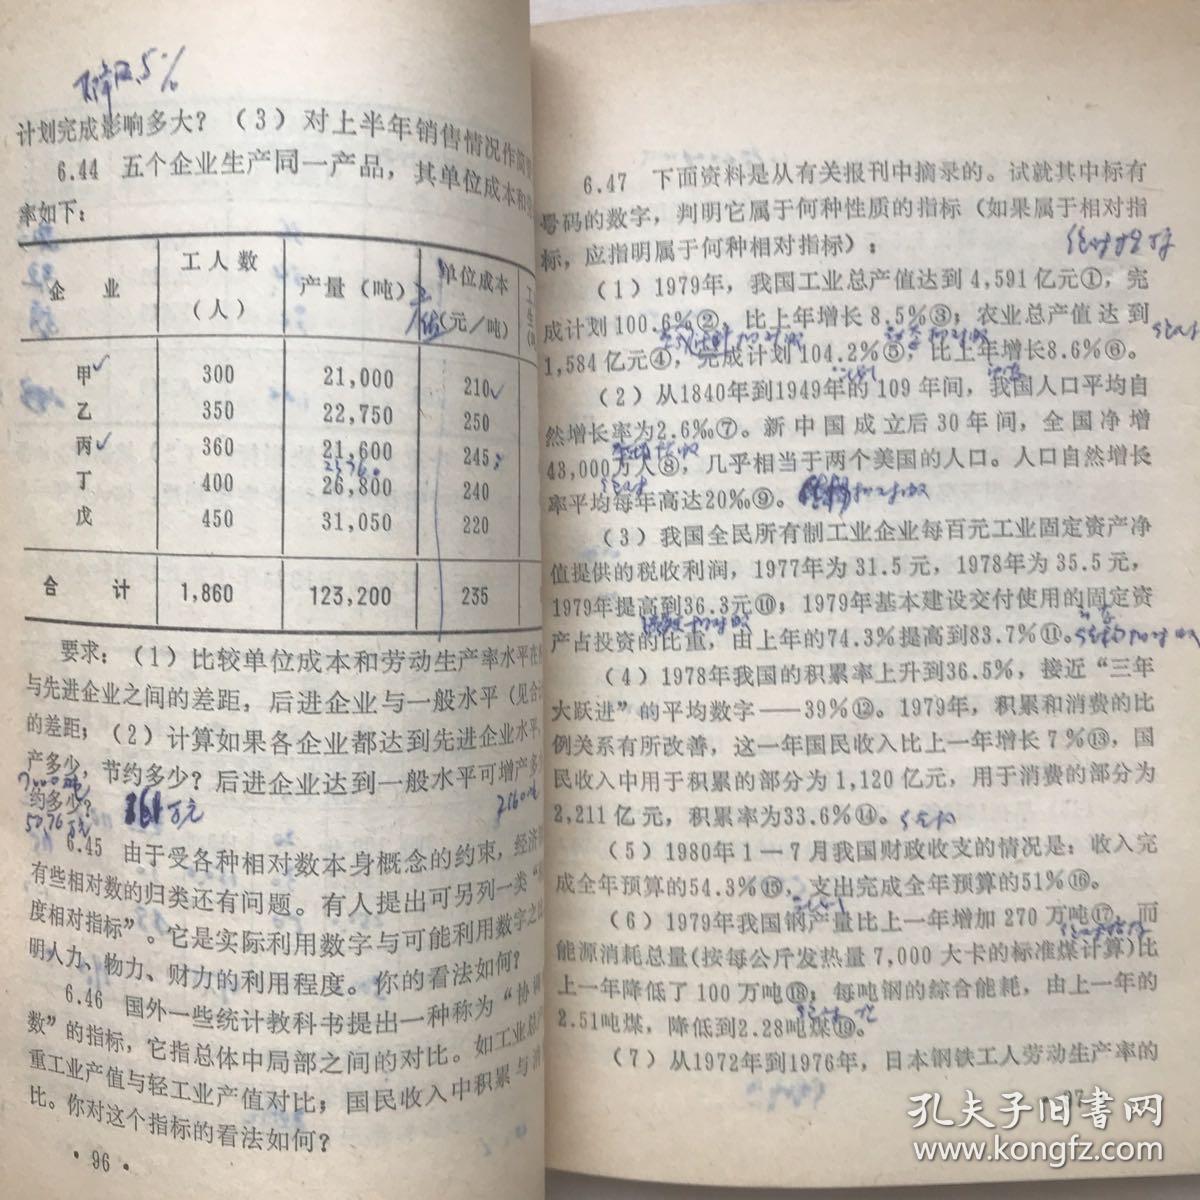 下降2.5%
计划完成影响多大？（3）对上半年销售情况作简
6.44 五个企业生产同一产品，其单位成本和
率如下：
企 业 工人数（人） 产量（吨） 单位成本（元/吨）
甲 300 21,000 210
乙 350 22,750 250
丙 360 21,600 245
丁 400 26,800 240
戊 450 31,050 220
合 计 1,860 123,200 235
要求：（1）比较单位成本和劳动生产率水平在
与先进企业之间的差距，后进企业与一般水平（见合
的差距；（2）计算如果各企业都达到先进企业水平，
产多少，节约多少？后进企业达到一般水平可增产多
约多少？
161万元
2160吨
50.76万元
6.45 由于受各种相对数本身概念的约束，经济
有些相对数的归类还有问题。有人提出可另列一类“
度相对指标”。它是实际利用数字与可能利用数字之比
明人力、物力、财力的利用程度。你的看法如何？
6.46 国外一些统计教科书提出一种称为“协
数”的指标，它指总体中局部之间的对比。如工业总产
重工业产值与轻工业产值对比；国民收入中积累与消
比。你对这个指标的看法如何？
·96·
6.47 下面资料是从有关报刊中摘录的。试就其中标有
号码的数字，判明它属于何种性质的指标（如果属于相对指
标，应指明属于何种相对指标）：
绝对指标
（1）1979年，我国工业总产值达到4,591亿元①，完
成计划100.6%②，比上年增长8.5%③；农业总产值达到
1,584亿元④，完成计划104.2%⑤，比上年增长8.6%⑥。
（2）从1840年到1949年的109年间，我国人口平均自
然增长率为2.6‰⑦。新中国成立后30年间，全国净增
43,000万人⑧，几乎相当于两个美国的人口。人口自然增长
率平均每年高达20‰⑨。
（3）我国全民所有制工业企业每百元工业固定资产净
值提供的税收利润，1977年为31.5元，1978年为35.5元，
1979年提高到36.3元⑩；1979年基本建设交付使用的固定资
产占投资的比重，由上年的74.3%提高到83.7%⑪。
（4）1978年我国的积累率上升到36.5%，接近“三年
大跃进”的平均数字——39%⑫。1979年，积累和消费的比
例关系有所改善，这一年国民收入比上一年增长7%⑬，国
民收入中用于积累的部分为1,120亿元，用于消费的部分为
2,211亿元，积累率为33.6%⑭。
（5）1980年1—7月我国财政收支的情况是：收入完
成全年预算的54.3%⑮，支出完成全年预算的51%⑯。
（6）1979年我国钢产量比上一年增加270万吨⑰，而
能源消耗总量(按每公斤发热量7,000大卡的标准煤计算)比
上一年降低了100万吨⑱；每吨钢的综合能耗，由上一年的
2.51吨煤，降低到2.28吨煤⑲。
（7）从1972年到1976年，日本钢铁工人劳动生产率的
孔夫子旧书网
www.kongfz.com